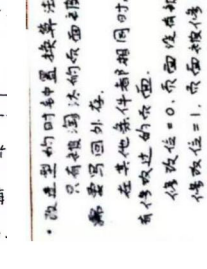 ·改进型的时钟置换算法
只有被淘汰的页面被
需要写回外存.
在其他条件都相同时,
有修改过的页面.
修改位=0,页面没有被
修改位=1,页面被修